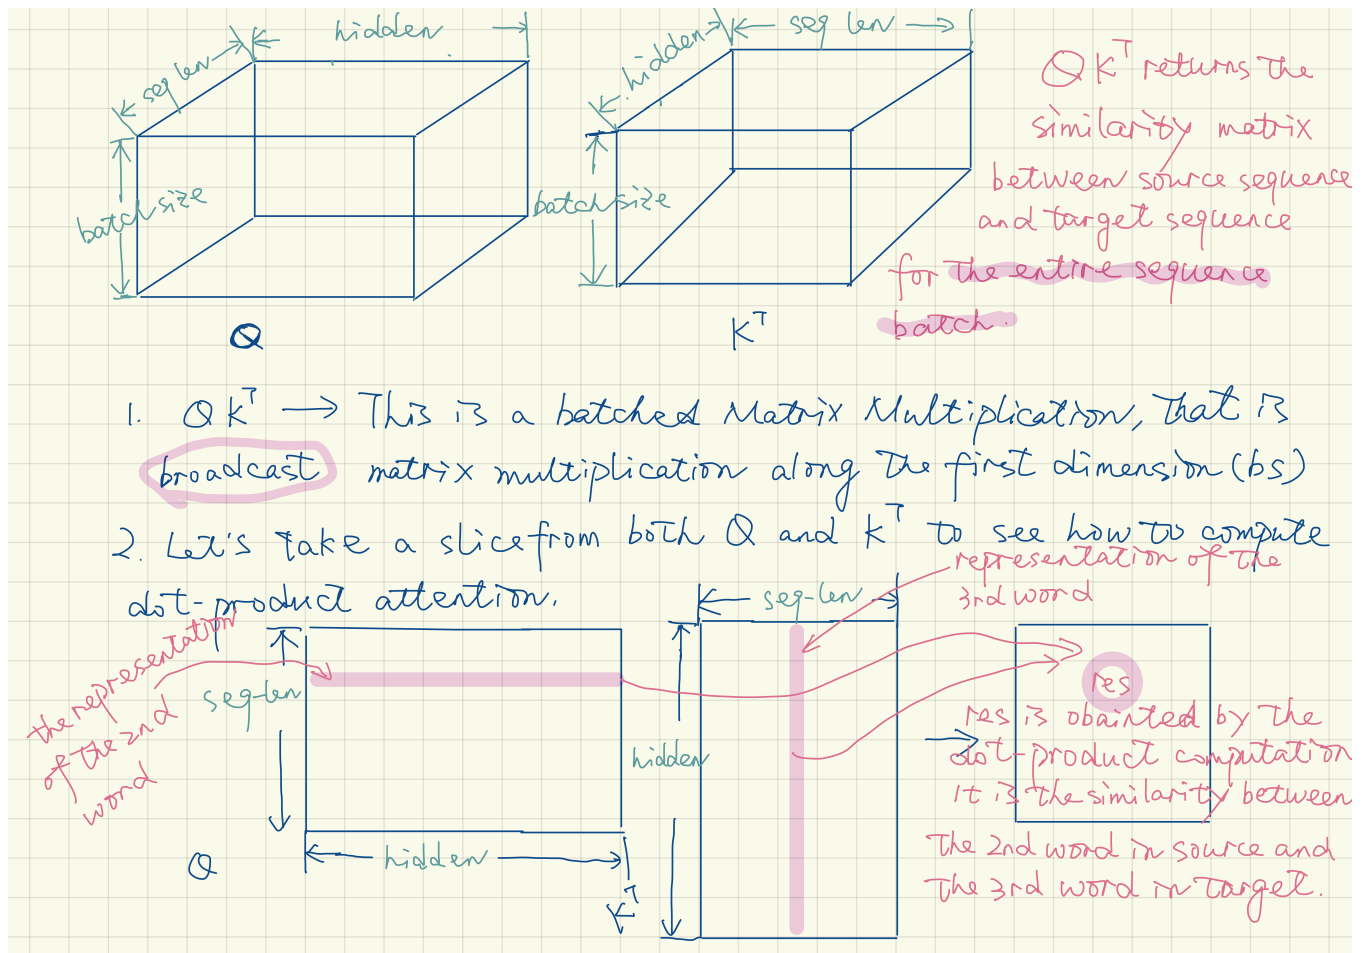 hidden
seq len
seq len
hidden
batch size
batch size
Q
K^T
QK^T returns the
similarity matrix
between source sequence
and target sequence
for the entire sequence
batch.
1. QK^T → This is a batched Matrix Multiplication, that is
broadcast matrix multiplication along the first dimension (bs)
2. Let's take a slice from both Q and K^T to see how to compute
dot-product attention.
representation of the
3rd word
the representation
of the 2nd
word
seq-len
hidden
Q
seq-len
hidden
K^T
res
res is obainted by the
dot-product computation
It is the similarity between
the 2nd word in source and
the 3rd word in target.